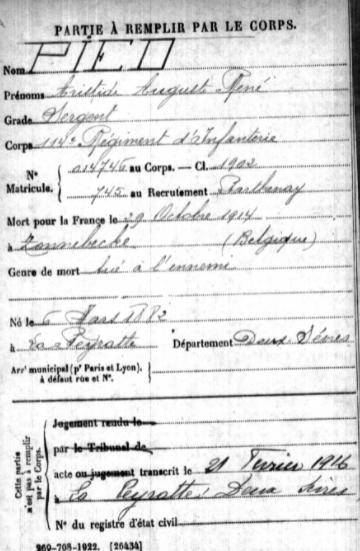 PARTIE À REMPLIR PAR LE CORPS.
Nom PIED
Prénoms Aristide Auguste René
Grade Sergent
Corps 114e Régiment d'Infanterie
No Matricule. 014746 au Corps. — Cl. 1902
745 au Recrutement Parthenay
Mort pour la France le 29 Octobre 1914
à Zonnebecke (Belgique)
Genre de mort tué à l'ennemi
Né le 6 Mars 1882
à La Peyratte Département Deux-Sèvres
Arrt municipal (pr Paris et Lyon), à défaut rue et No.
Cette partie n'est pas à remplir par le Corps.
Jugement rendu le
par le Tribunal de
acte ou jugement transcrit le 21 Février 1916
à La Peyratte, Deux Sèvres
No du registre d'état civil
269-708-1922. [26434]